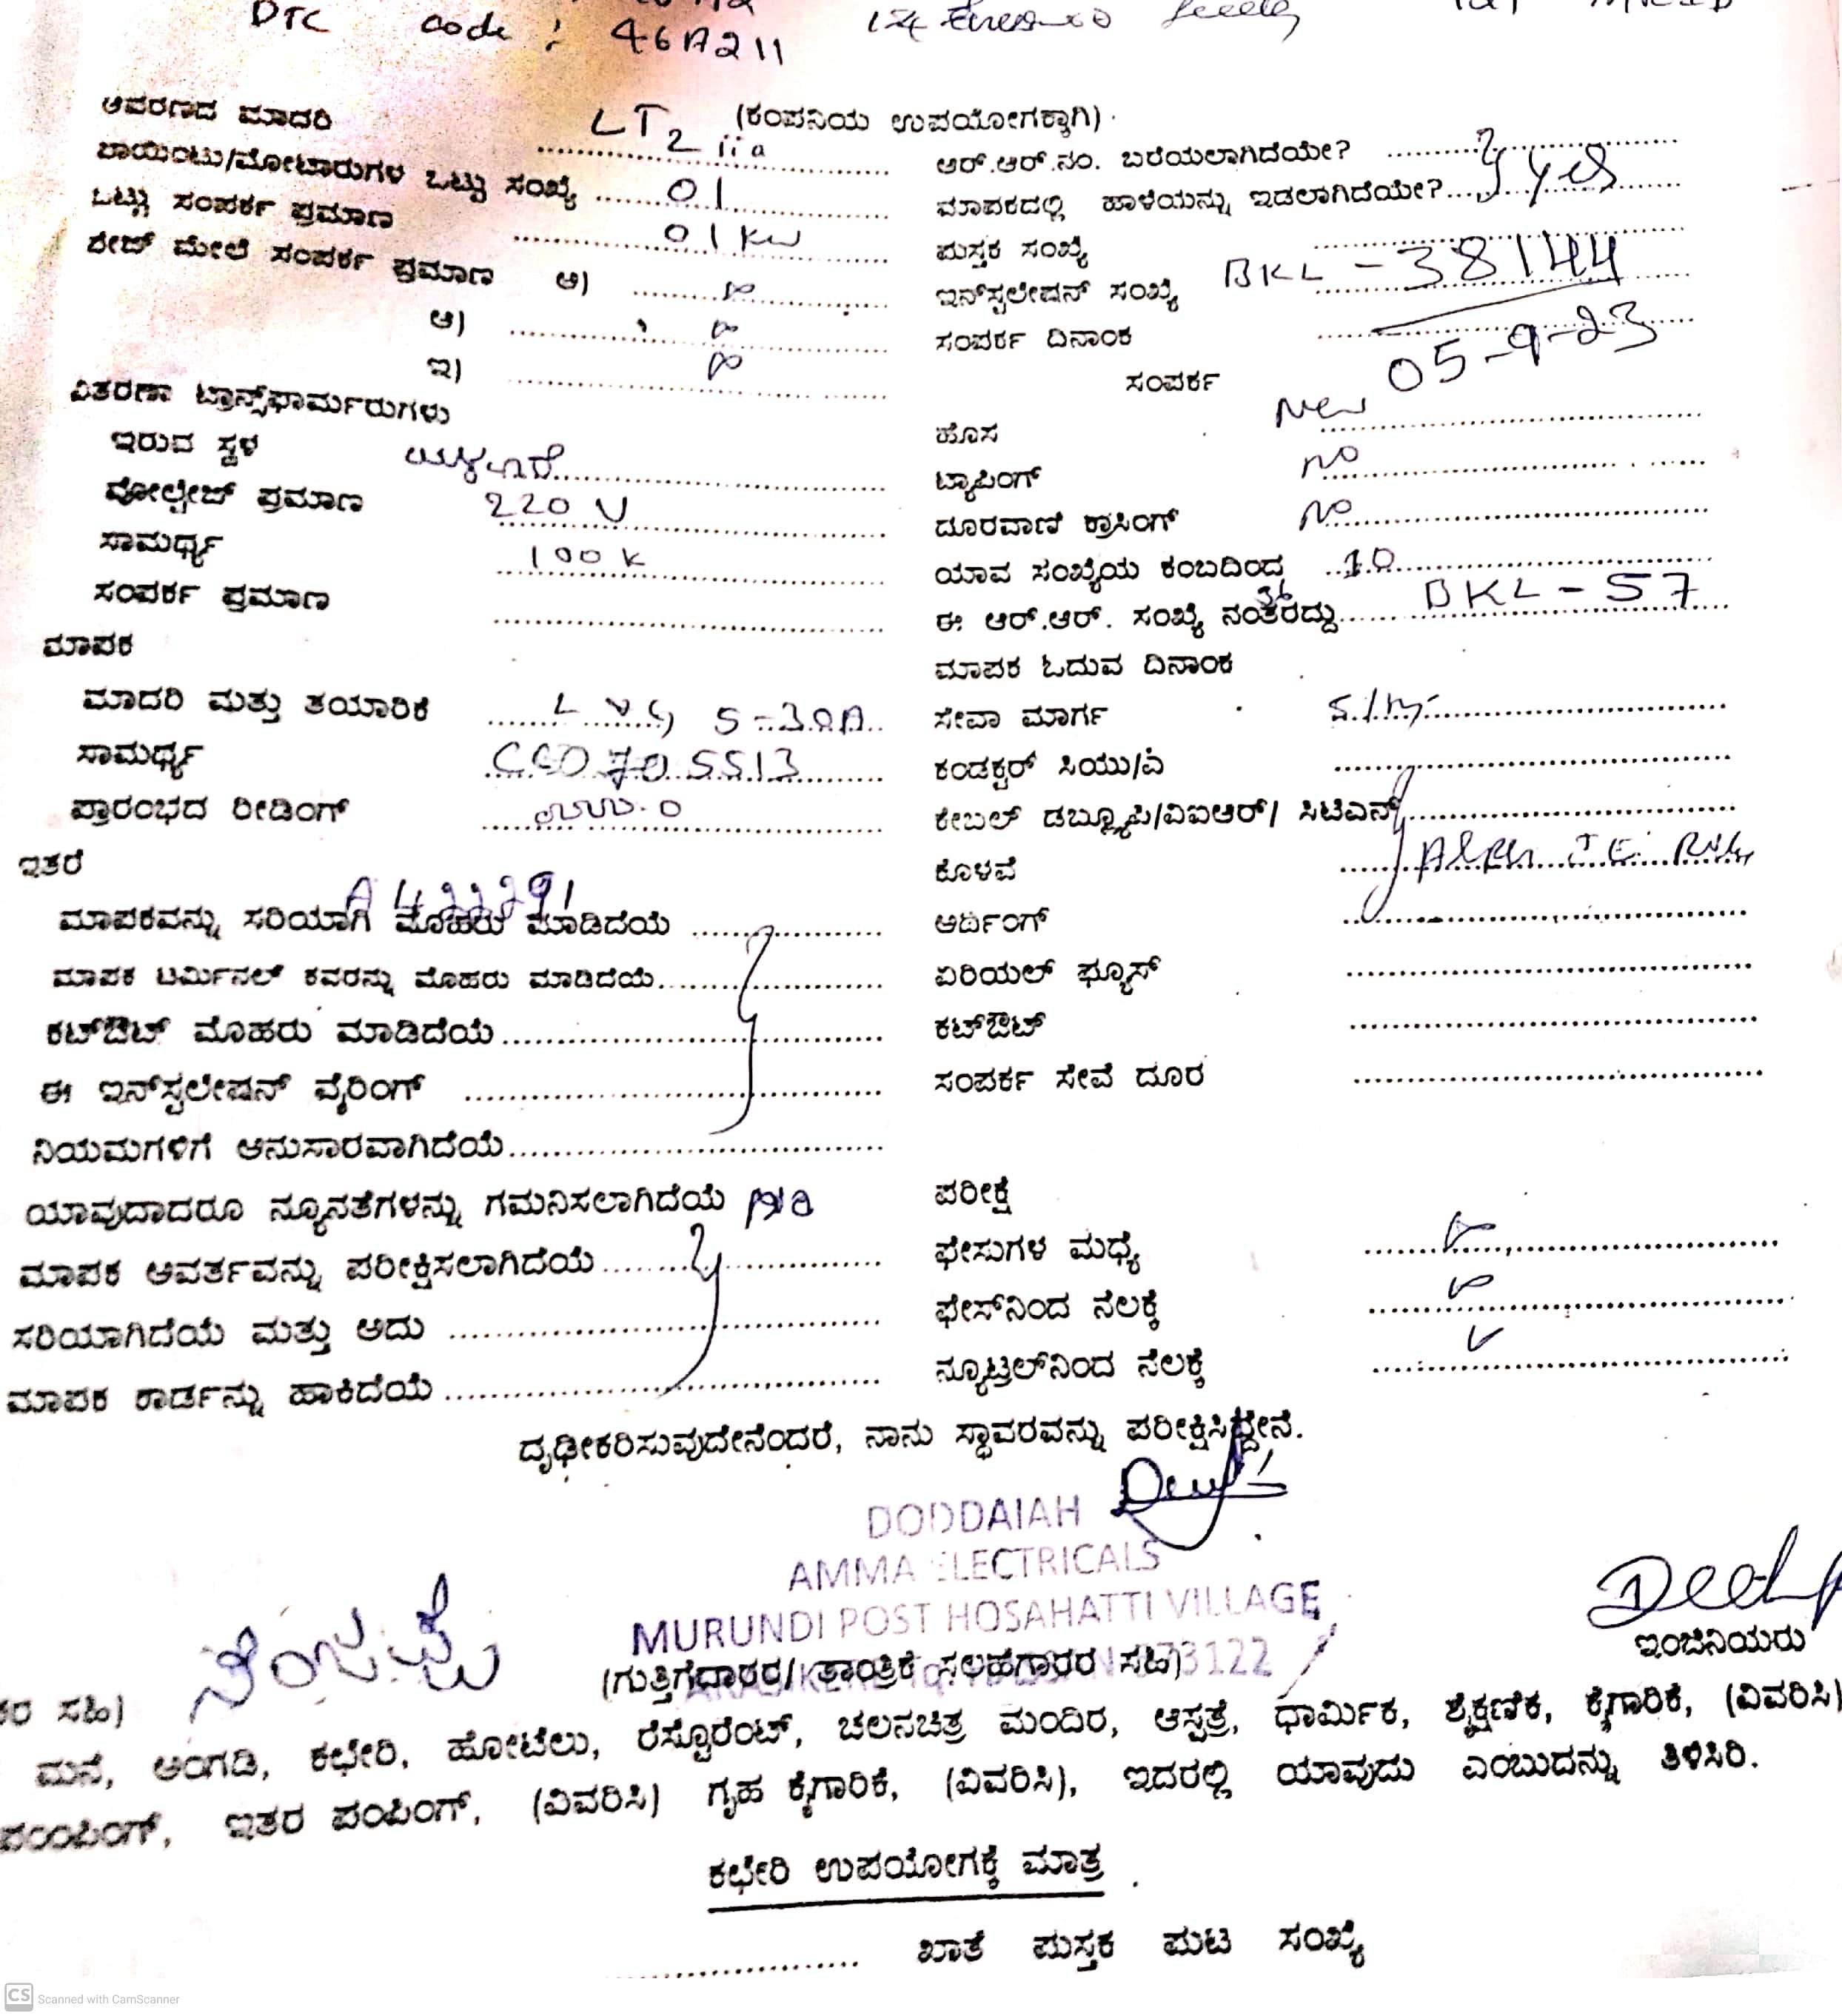 DTC code : 46A211
(ಕಂಪನಿಯ ಉಪಯೋಗಕ್ಕಾಗಿ)
ಆವರಣದ ಮಾದರಿ LT2 iia
ಪಾಯಿಂಟು/ಮೋಟಾರುಗಳ ಒಟ್ಟು ಸಂಖ್ಯೆ 01
ಒಟ್ಟು ಸಂಪರ್ಕ ಪ್ರಮಾಣ 01 KW
ಫೇಜ್ ಮೇಲೆ ಸಂಪರ್ಕ ಪ್ರಮಾಣ ಅ)
ಆ)
ಇ)
ವಿತರಣಾ ಟ್ರಾನ್ಸ್‌ಫಾರ್ಮರುಗಳು
ಇರುವ ಸ್ಥಳ
ವೋಲ್ಟೇಜ್ ಪ್ರಮಾಣ 220 V
ಸಾಮರ್ಥ್ಯ 100 K
ಸಂಪರ್ಕ ಪ್ರಮಾಣ
ಮಾಪಕ
ಮಾದರಿ ಮತ್ತು ತಯಾರಿಕೆ L &G 5-30A
ಸಾಮರ್ಥ್ಯ
ಪ್ರಾರಂಭದ ರೀಡಿಂಗ್
ಇತರೆ
A422291
ಮಾಪಕವನ್ನು ಸರಿಯಾಗಿ ಮೊಹರು ಮಾಡಿದೆಯೆ
ಮಾಪಕ ಟರ್ಮಿನಲ್ ಕವರನ್ನು ಮೊಹರು ಮಾಡಿದೆಯೆ
ಕಟ್‌ಔಟ್ ಮೊಹರು ಮಾಡಿದೆಯೆ
ಈ ಇನ್‌ಸ್ಟಲೇಷನ್ ವೈರಿಂಗ್
ನಿಯಮಗಳಿಗೆ ಅನುಸಾರವಾಗಿದೆಯೆ
ಯಾವುದಾದರೂ ನ್ಯೂನತೆಗಳನ್ನು ಗಮನಿಸಲಾಗಿದೆಯೆ
ಮಾಪಕ ಆವರ್ತವನ್ನು ಪರೀಕ್ಷಿಸಲಾಗಿದೆಯೆ
ಸರಿಯಾಗಿದೆಯೆ ಮತ್ತು ಅದು
ಮಾಪಕ ಕಾರ್ಡನ್ನು ಹಾಕಿದೆಯೆ
ಆರ್.ಆರ್.ನಂ. ಬರೆಯಲಾಗಿದೆಯೇ?
ಮಾಪಕದಲ್ಲಿ ಹಾಳೆಯನ್ನು ಇಡಲಾಗಿದೆಯೇ? yes
ಪುಸ್ತಕ ಸಂಖ್ಯೆ
ಇನ್‌ಸ್ಟಲೇಷನ್ ಸಂಖ್ಯೆ BKL - 38144
ಸಂಪರ್ಕ ದಿನಾಂಕ 05-9-23
ಸಂಪರ್ಕ
ಹೊಸ New
ಟ್ಯಾಪಿಂಗ್ no
ದೂರವಾಣಿ ಕ್ರಾಸಿಂಗ್ no
ಯಾವ ಸಂಖ್ಯೆಯ ಕಂಬದಿಂದ 10
ಈ ಆರ್.ಆರ್. ಸಂಖ್ಯೆ ನಂತರದ್ದು BKL - 57
ಮಾಪಕ ಓದುವ ದಿನಾಂಕ
ಸೇವಾ ಮಾರ್ಗ
ಕಂಡಕ್ಟರ್ ಸಿಯು/ಎ
ಕೇಬಲ್ ಡಬ್ಲ್ಯೂಪಿ/ವಿಐಆರ್/ ಸಿಟಿಎನ್
ಕೊಳವೆ
ಆರ್ದಿಂಗ್
ಏರಿಯಲ್ ಫ್ಯೂಸ್
ಕಟ್‌ಔಟ್
ಸಂಪರ್ಕ ಸೇವೆ ದೂರ
ಪರೀಕ್ಷೆ
ಫೇಸುಗಳ ಮಧ್ಯೆ
ಫೇಸ್‌ನಿಂದ ನೆಲಕ್ಕೆ
ನ್ಯೂಟ್ರಲ್‌ನಿಂದ ನೆಲಕ್ಕೆ
ದೃಢೀಕರಿಸುವುದೇನೆಂದರೆ, ನಾನು ಸ್ಥಾವರವನ್ನು ಪರೀಕ್ಷಿಸಿದ್ದೇನೆ.
DODDAIAH
AMMA ELECTRICALS
MURUNDI POST HOSAHATTI VILLAGE
ಇಂಜಿನಿಯರು
(ಗುತ್ತಿಗೆದಾರರ/ ತಾಂತ್ರಿಕ ಸಲಹೆಗಾರರ ಸಹಿ)
ಸಹಿ)
ಮನೆ, ಅಂಗಡಿ, ಕಛೇರಿ, ಹೋಟೆಲು, ರೆಸ್ಟೊರೆಂಟ್, ಚಲನಚಿತ್ರ ಮಂದಿರ, ಆಸ್ಪತ್ರೆ, ಧಾರ್ಮಿಕ, ಶೈಕ್ಷಣಿಕ, ಕೈಗಾರಿಕೆ, (ವಿವರಿಸಿ)
ಪಂಪಿಂಗ್, ಇತರ ಪಂಪಿಂಗ್, (ವಿವರಿಸಿ) ಗೃಹ ಕೈಗಾರಿಕೆ, (ವಿವರಿಸಿ), ಇದರಲ್ಲಿ ಯಾವುದು ಎಂಬುದನ್ನು ತಿಳಿಸಿರಿ.
ಕಛೇರಿ ಉಪಯೋಗಕ್ಕೆ ಮಾತ್ರ
ಖಾತೆ ಪುಸ್ತಕ ಪುಟ ಸಂಖ್ಯೆ
CS Scanned with CamScanner